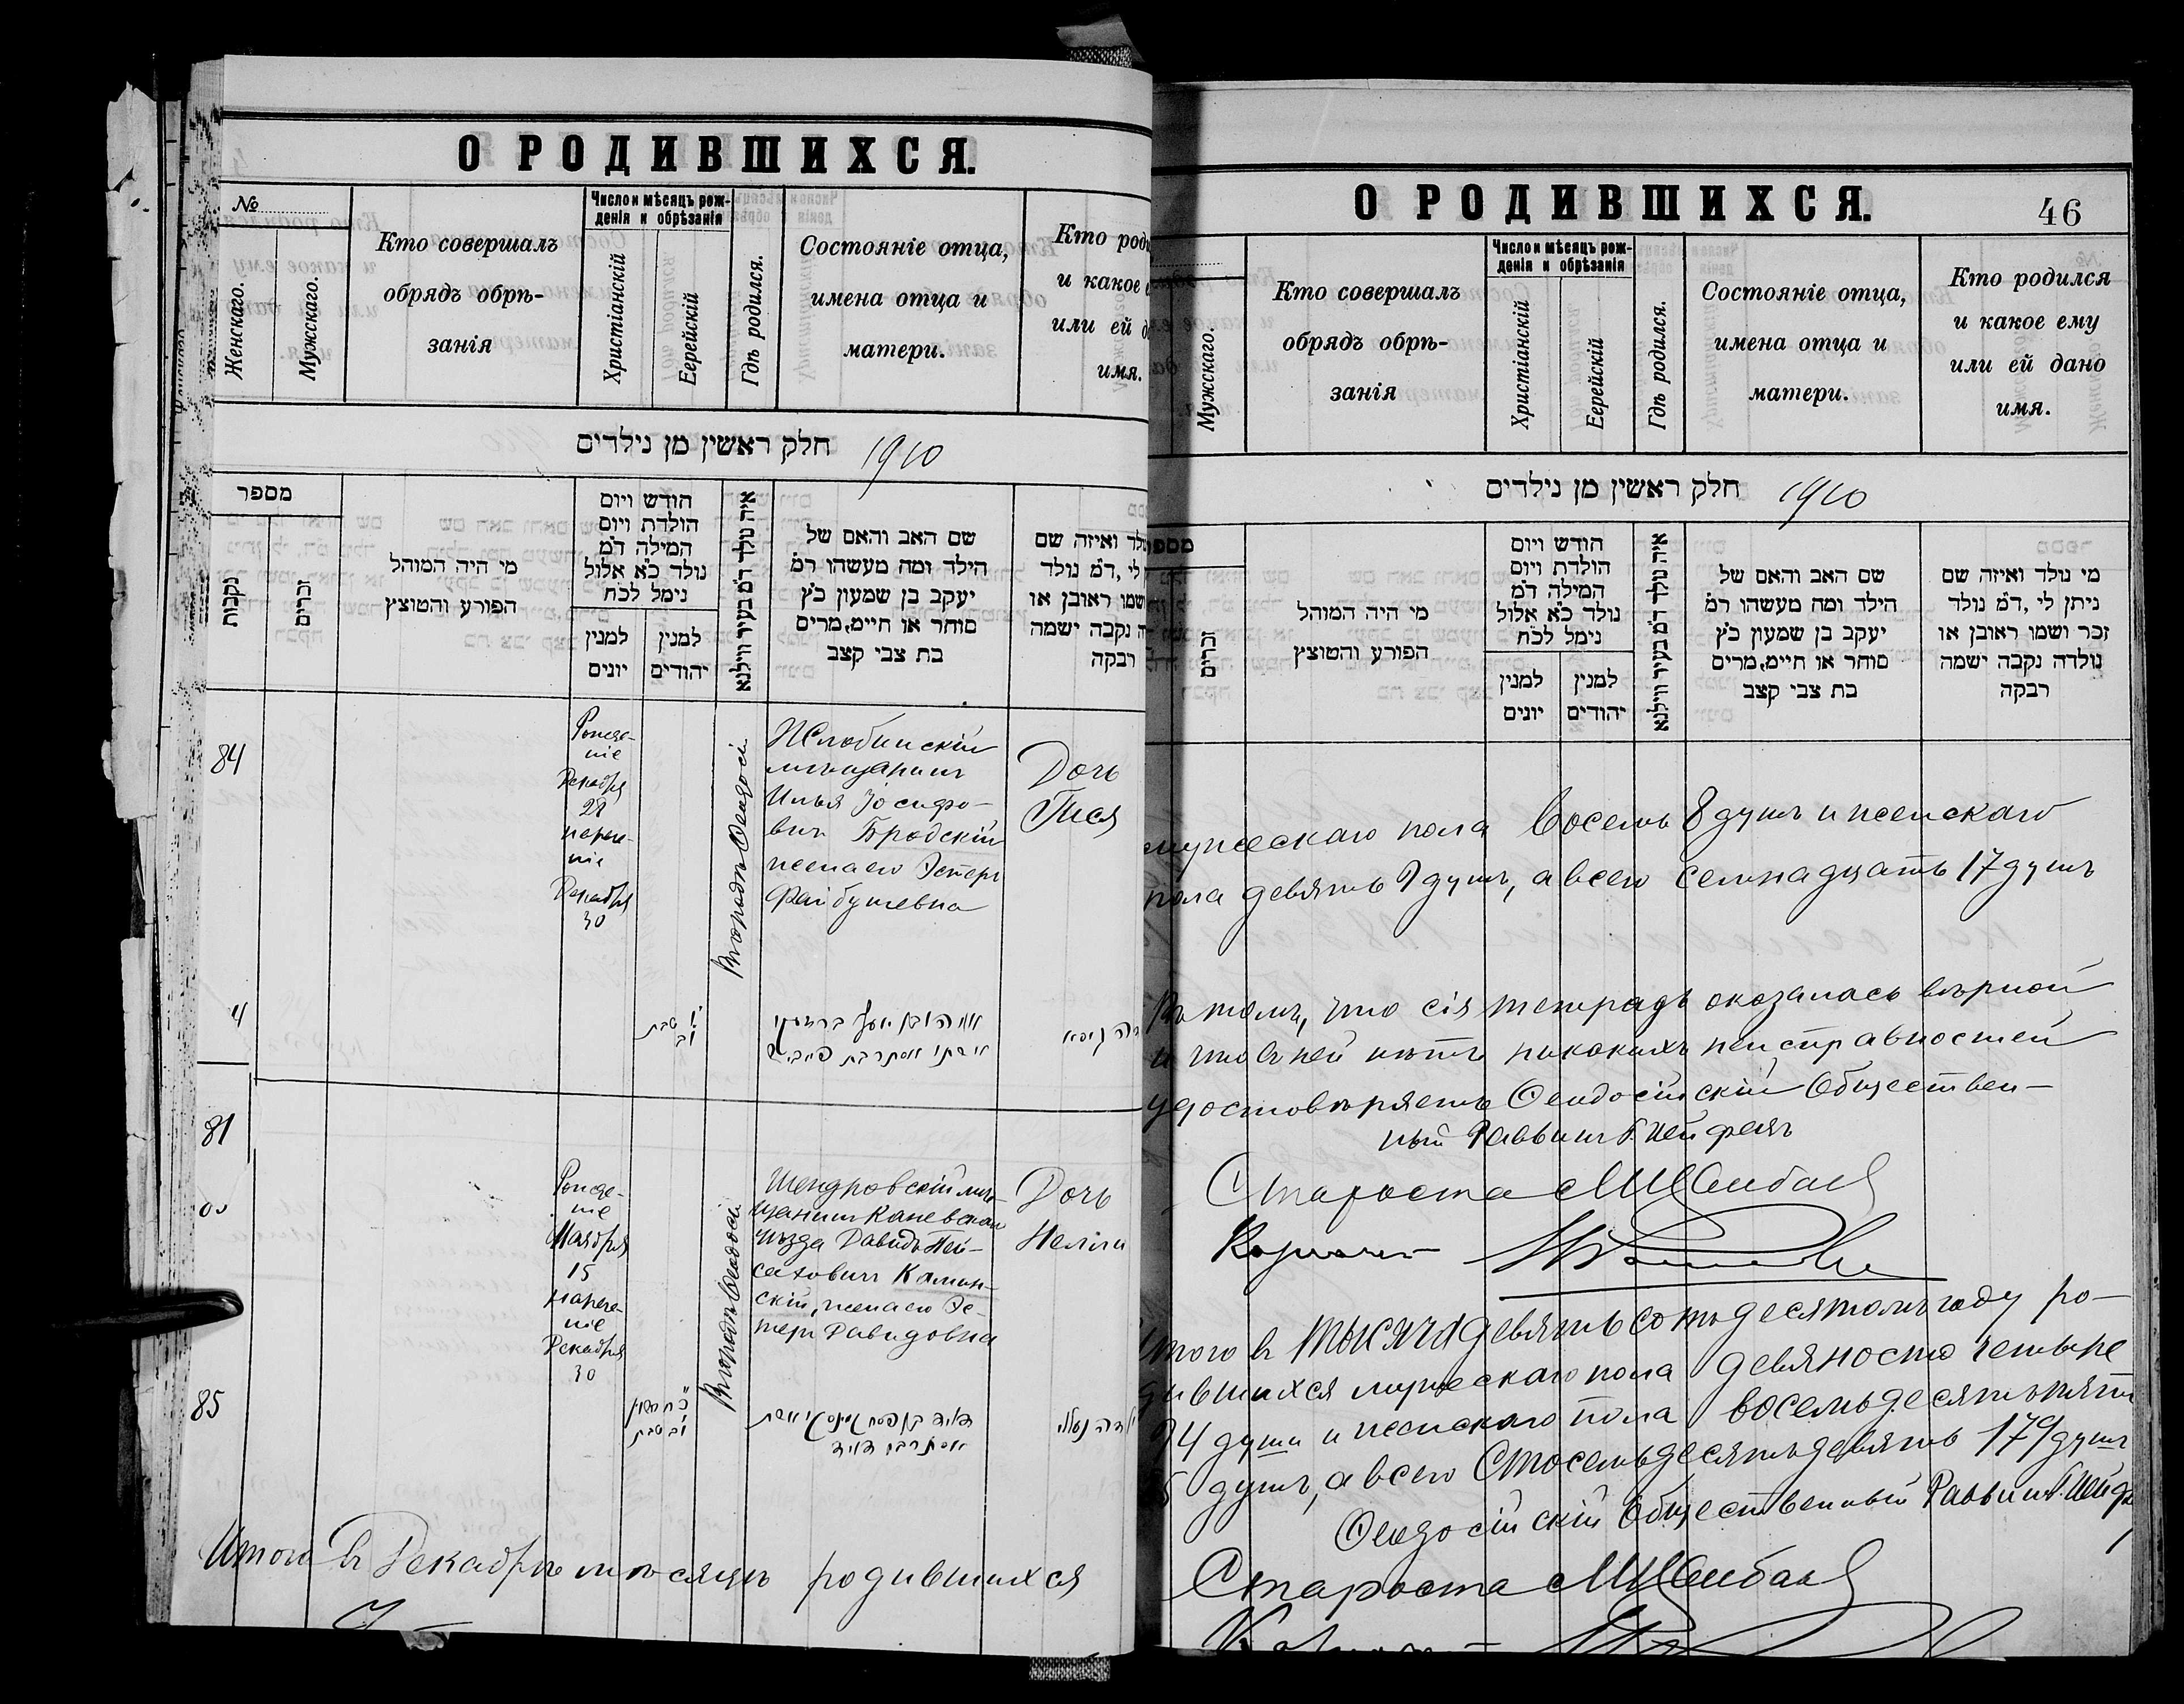 О РОДИВШИХСЯ.
№
Женскаго.
Мужскаго.
Кто совершалъ
обрядъ обрѣ-
занія
Число и мѣсяцъ рож-
денія и обрѣзанія
Христіанскій
Еерейскій
Гдѣ родился.
Состояніе отца,
имена отца и
матери.
Кто роди
и какое
или ей
имя.
חלק ראשין מן נילדים 1910
מספר
נקבות
זכרים
מי היה המוהל
הפורע והמוצץ
חודש ויום
הולדת ויום
המילה דמ
נולד כא אלול
נימל לכח
למנין
יונים
למנין
יהודים
איה נולד דמ בעיר ווילנא
שם האב והאם של
הילד ומה מעשהו רמ
יעקב בן שמעון כץ
סוחר או חיים, מרים
בת צבי קצב
ולד ואיזה שם
לי, דמ נולד
ושמו ראובן או
נקבה ישמה
רבקה
84
Рожде-
ніе
Декабря
28
нарече-
ніе
Декабря
30
Въ городѣ Ѳеодосіи
Жлобинскій
мѣщанинъ
Илья Іосифо-
вичъ Бродскій
жена его Эстеръ
Файбушевна
Дочь
Гися
81
Рожде-
ніе
Ноября
15
нарече-
ніе
Декабря
30
Въ городѣ Ѳеодосіи
Шендровскій мѣ-
щанинъ Каневскаго
уѣзда Давидъ Пей-
саховичъ Камин-
скій, жена его Эс-
теръ Давидовна
Дочь
Нелли
85
Итого въ Декабрѣ мѣсяцѣ родившихся
О РОДИВШИХСЯ.
46
Мужскаго.
Кто совершалъ
обрядъ обрѣ-
занія
Число и мѣсяцъ рож-
денія и обрѣзанія
Христіанскій
Еерейскій
Гдѣ родился.
Состояніе отца,
имена отца и
матери.
Кто родился
и какое ему
или ей дано
имя.
חלק ראשין מן נילדים 1910
זכרים
מי היה המוהל
הפורע והמוצץ
חודש ויום
הולדת ויום
המילה דמ
נולד כא אלול
נימל לכח
למנין
יונים
למנין
יהודים
איה נולד דמ בעיר ווילנא
שם האב והאם של
הילד ומה מעשהו רמ
יעקב בן שמעון כץ
סוחר או חיים, מרים
בת צבי קצב
מי נולד ואיזה שם
ניתן לי, דמ נולד
זכר ושמו ראובן או
נולדה נקבה ישמה
רבקה
мужескаго пола восемь 8 душъ и женскаго
пола девять 9 душъ, а всего семнадцать 17 душъ
Въ томъ, что сія тетрадь оказалась вѣрной
и что въ ней нѣтъ никакихъ неисправностей
удостовѣряетъ Ѳеодосійскій Обществен-
ный Раввинъ
Староста
Итого въ тысяча девятьсотъ десятомъ году ро-
дившихся мужескаго пола девяносто четыре
94 души и женскаго пола восемьдесятъ пять
85 душъ, а всего сто семьдесятъ девять 179 душъ
Ѳеодосійскій Общественный Раввинъ
Староста